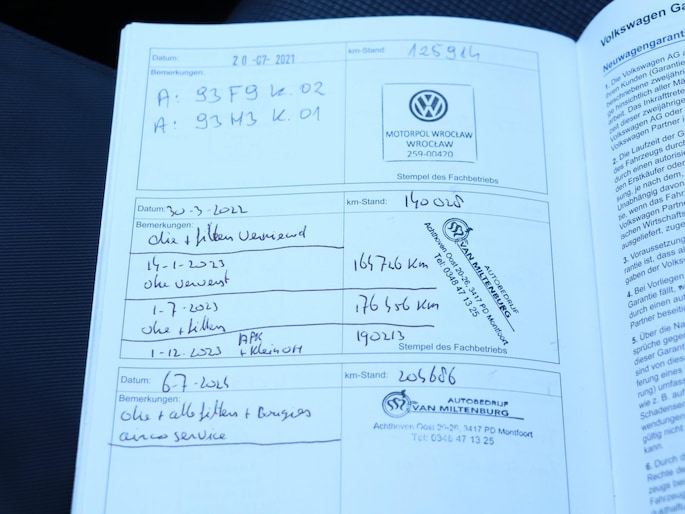 Datum: 20-07-2021 km-Stand: 125914
Bemerkungen:
A: 93 F9 K. 02
A: 93 M3 K. 01
MOTORPOL WROCŁAW
WROCŁAW
259-00420
Stempel des Fachbetriebs
Datum: 30-3-2022 km-Stand: 140028
Bemerkungen:
olie + filters ververst
14-1-2023 164726 Km
olie ververst
1-7-2023 176456 Km
olie + filters
1-12-2023 APK + Klein OH 190213
AUTOBEDRIJF
VAN MILTENBURG
Achthoven Oost 20-26, 3417 PD Montfoort
Tel: 0348 47 13 25
Stempel des Fachbetriebs
Datum: 6-7-2024 km-Stand: 203686
Bemerkungen:
olie + alle filters + Bougies
airco service
AUTOBEDRIJF
VAN MILTENBURG
Achthoven Oost 20-26, 3417 PD Montfoort
Tel: 0348 47 13 25
Volkswagen Ga
Neuwagengarant
1. Die Volkswagen AG
ihren Kunden (Garantie
beschriebene zweijährige
ge hinsichtlich aller Mä
arbeit. Das Inkrafttrete
zeit dieser zweijährige
Volkswagen AG oder
Volkswagen Partner
2. Die Laufzeit der G
des Fahrzeugs durch
durch einen autorisie
den Erstkäufer oder
sung, je nach dem,
Unabhängig davon
tie, wenn das Fahr
Volkswagen Partn
ischen Wirtschafts
ausgeliefert, zuge
3. Voraussetzung
rantie ist, dass al
gaben der Volks
4. Bei Vorliegen
Garantie fällt,
durch einen auto
Partner beseitig
5. Über die Na
sprüche gegen
dieser Garant
sind von diese
ferung eines
rung) umfass
wie z. B. auf
Schadenser
wendungen
gültig nicht
kann.
6. Durch d
Rechte de
zeugs be